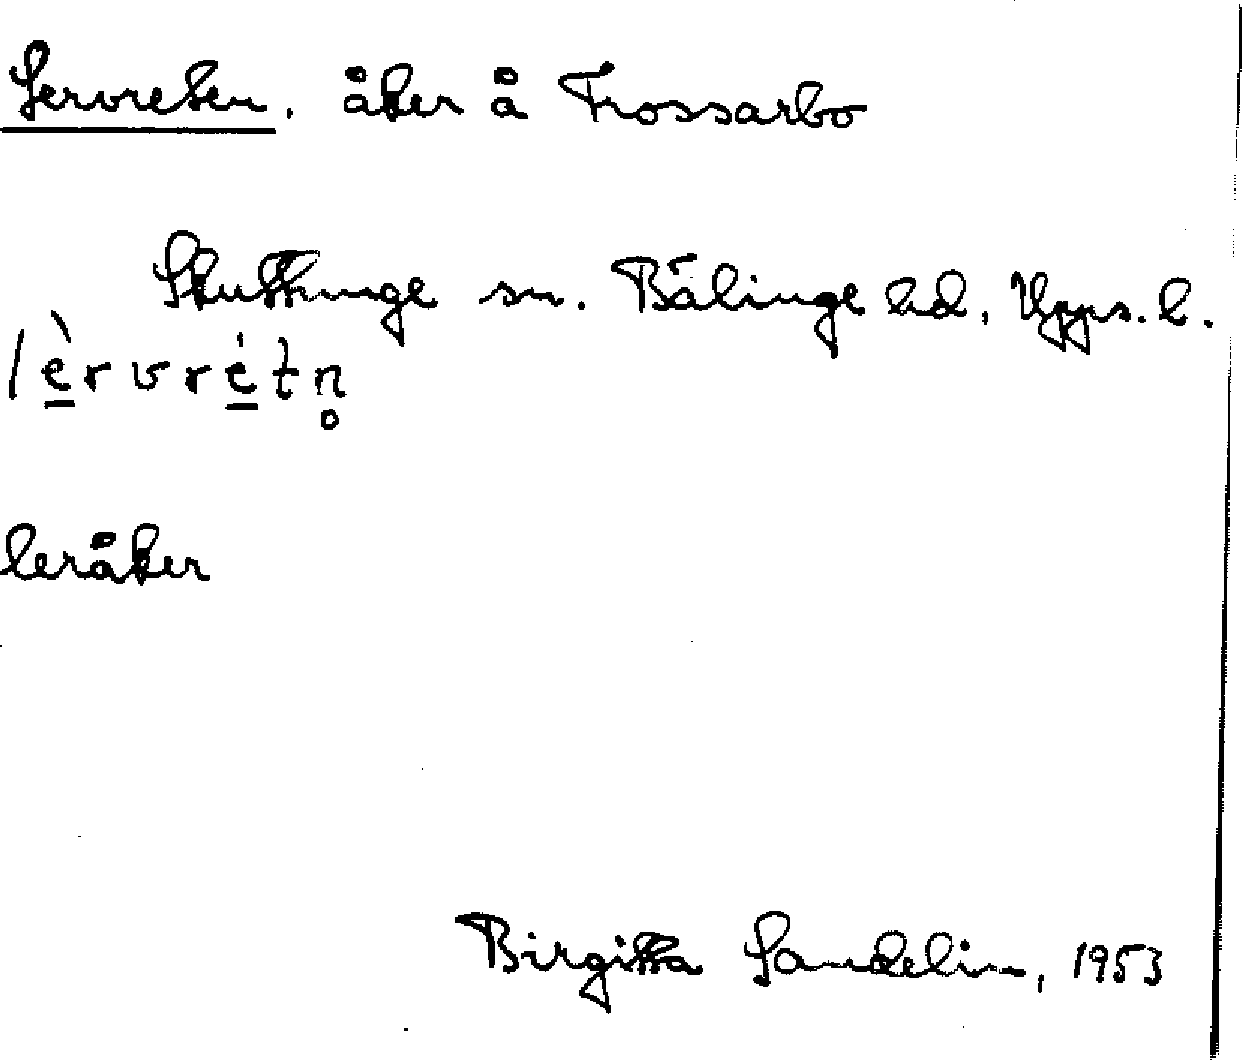 Lervreten. åker å Frossarbo
Skuttunge sn. Bälinge hd. Upps. l.
lèrvrétn̥
leråker
Birgitta Sandelin, 1953